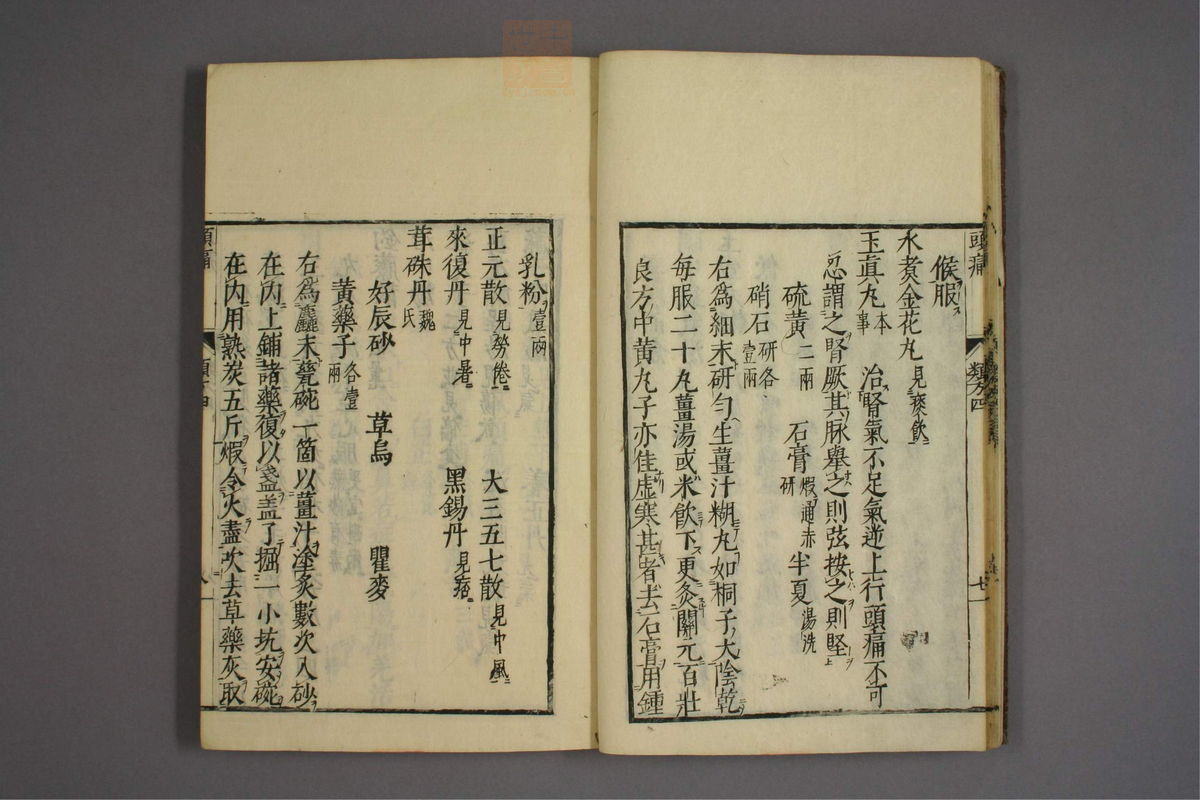 頭痛
類方四
七
候服
水煮金花丸 見痰飲
玉真丸 本事 治腎氣不足氣逆上行頭痛不可
忍謂之腎厥其脉舉之則弦按之則堅
硫黄 二兩 石膏 煆通赤研 半夏 湯洗
硝石 研各壹兩
右為細末研勻生薑汁糊丸如桐子大陰乾
每服二十丸薑湯或米飲下更灸關元百壯
良方中黄丸子亦佳虚寒甚者去石膏用鍾
乳粉 壹兩
正元散 見勞倦 大三五七散 見中風
來復丹 見中暑 黑錫丹 見痼
茸硃丹 魏氏
好辰砂 草烏 瞿麥
黄藥子 各壹兩
右為麤末甆碗一箇以薑汁塗炙數次入砂
在内上鋪諸藥復以盞盖了掘一小坑安碗
在内用熟炭五斤煆令火盡吹去草藥灰取
頭痛